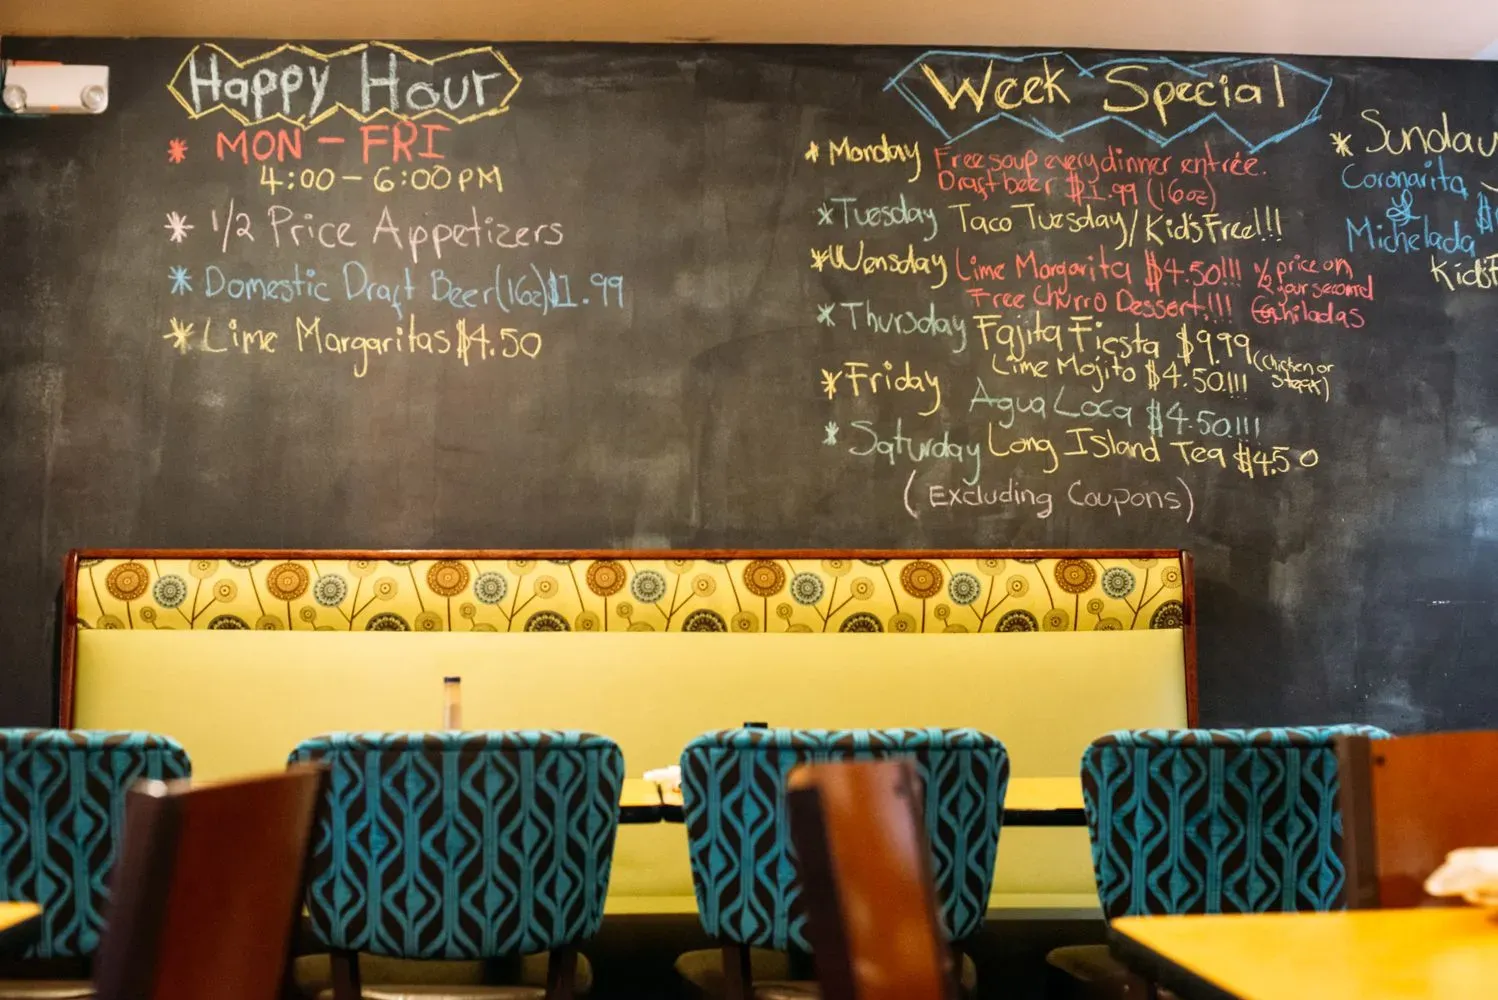 Happy Hour
* MON - FRI
4:00 - 6:00 PM
* 1/2 Price Appetizers
* Domestic Draft Beer (16oz) $1.99
* Lime Margaritas $4.50
Week Special
* Monday Free soup every dinner entrée.
Draft beer $1.99 (16oz)
* Tuesday Taco Tuesday / Kid's Free!!!
* Wensday Lime Margarita $4.50!!! 1/2 price on
Free Churro Dessert!!! your second
Enhiladas
* Thursday Fajita Fiesta $9.99 (chicken or
steak)
Lime Mojito $4.50!!!
* Friday Agua Loca $4.50!!!
* Saturday Long Island Tea $4.50
(Excluding Coupons)
* Sunday
Coronarita
&
Michelada
Kid's